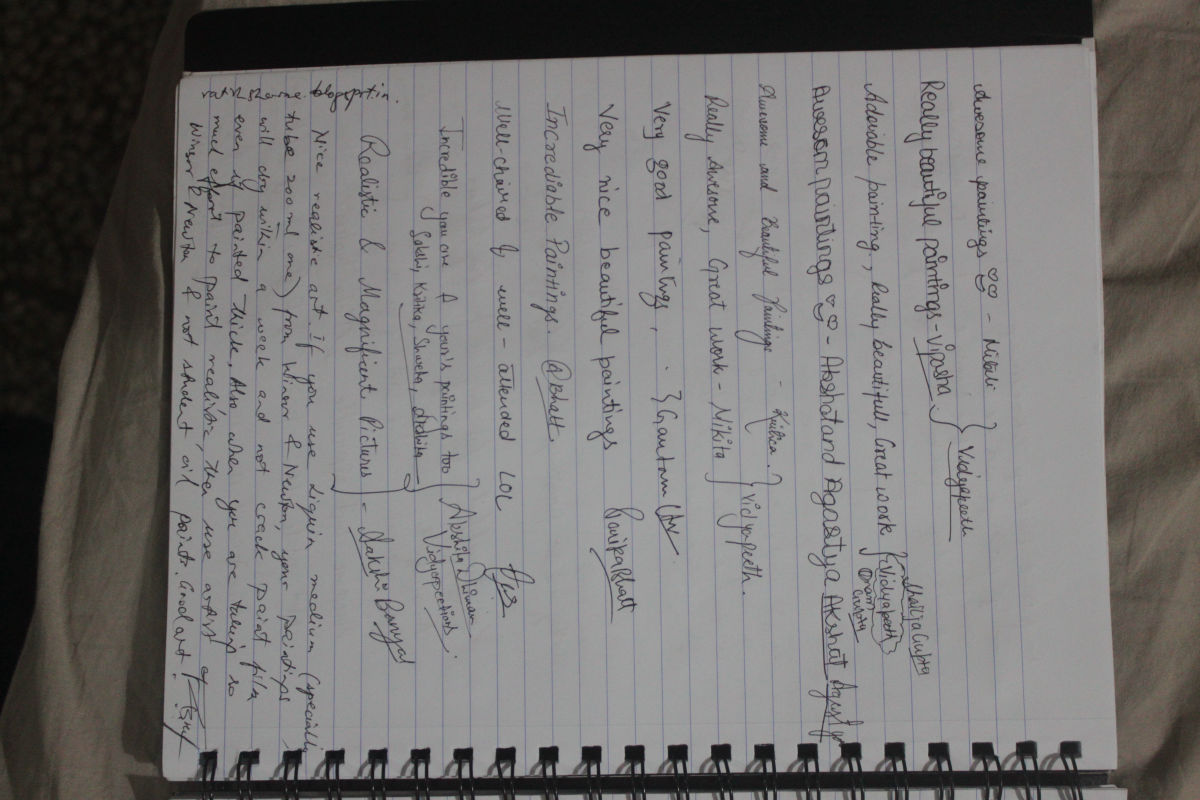 Awesome paintings - Nitali
Really beautiful paintings - Vipasha } Vidyapeeth
Adorable painting, Really beautifull, Great work } Vidyapeeth
Shailja Gupta
Gupta
Awesom paintings - Akshat and Agastya Akshat Agastya
Awesome and Beautiful Paintings -
Really Awesome, Great work - Nikita } Vidyapeeth.
Very good paintings, } Gautam
Very nice beautiful paintings
Increadiable Paintings. @bhatt
Well-chaired & well-attended LOL
Incredible you are & your's paintings too } Akshita Dhiman
Sakshi, Kritika, Shweta, Akshita Vidyapeethians.
Realistic & Magnificent Pictures } - Sakshi Banyal
blogspot.in.
Nice realistic art. if you use Liquin medium (specially
tube 200 ml one) from Winsor & Newton, your paintings
will dry within a week and not crack paint film
even if painted thick. Also when you are taking so
much effort to paint realistic, then use artist
Winsor & Newton & not student oil paints. Good art!